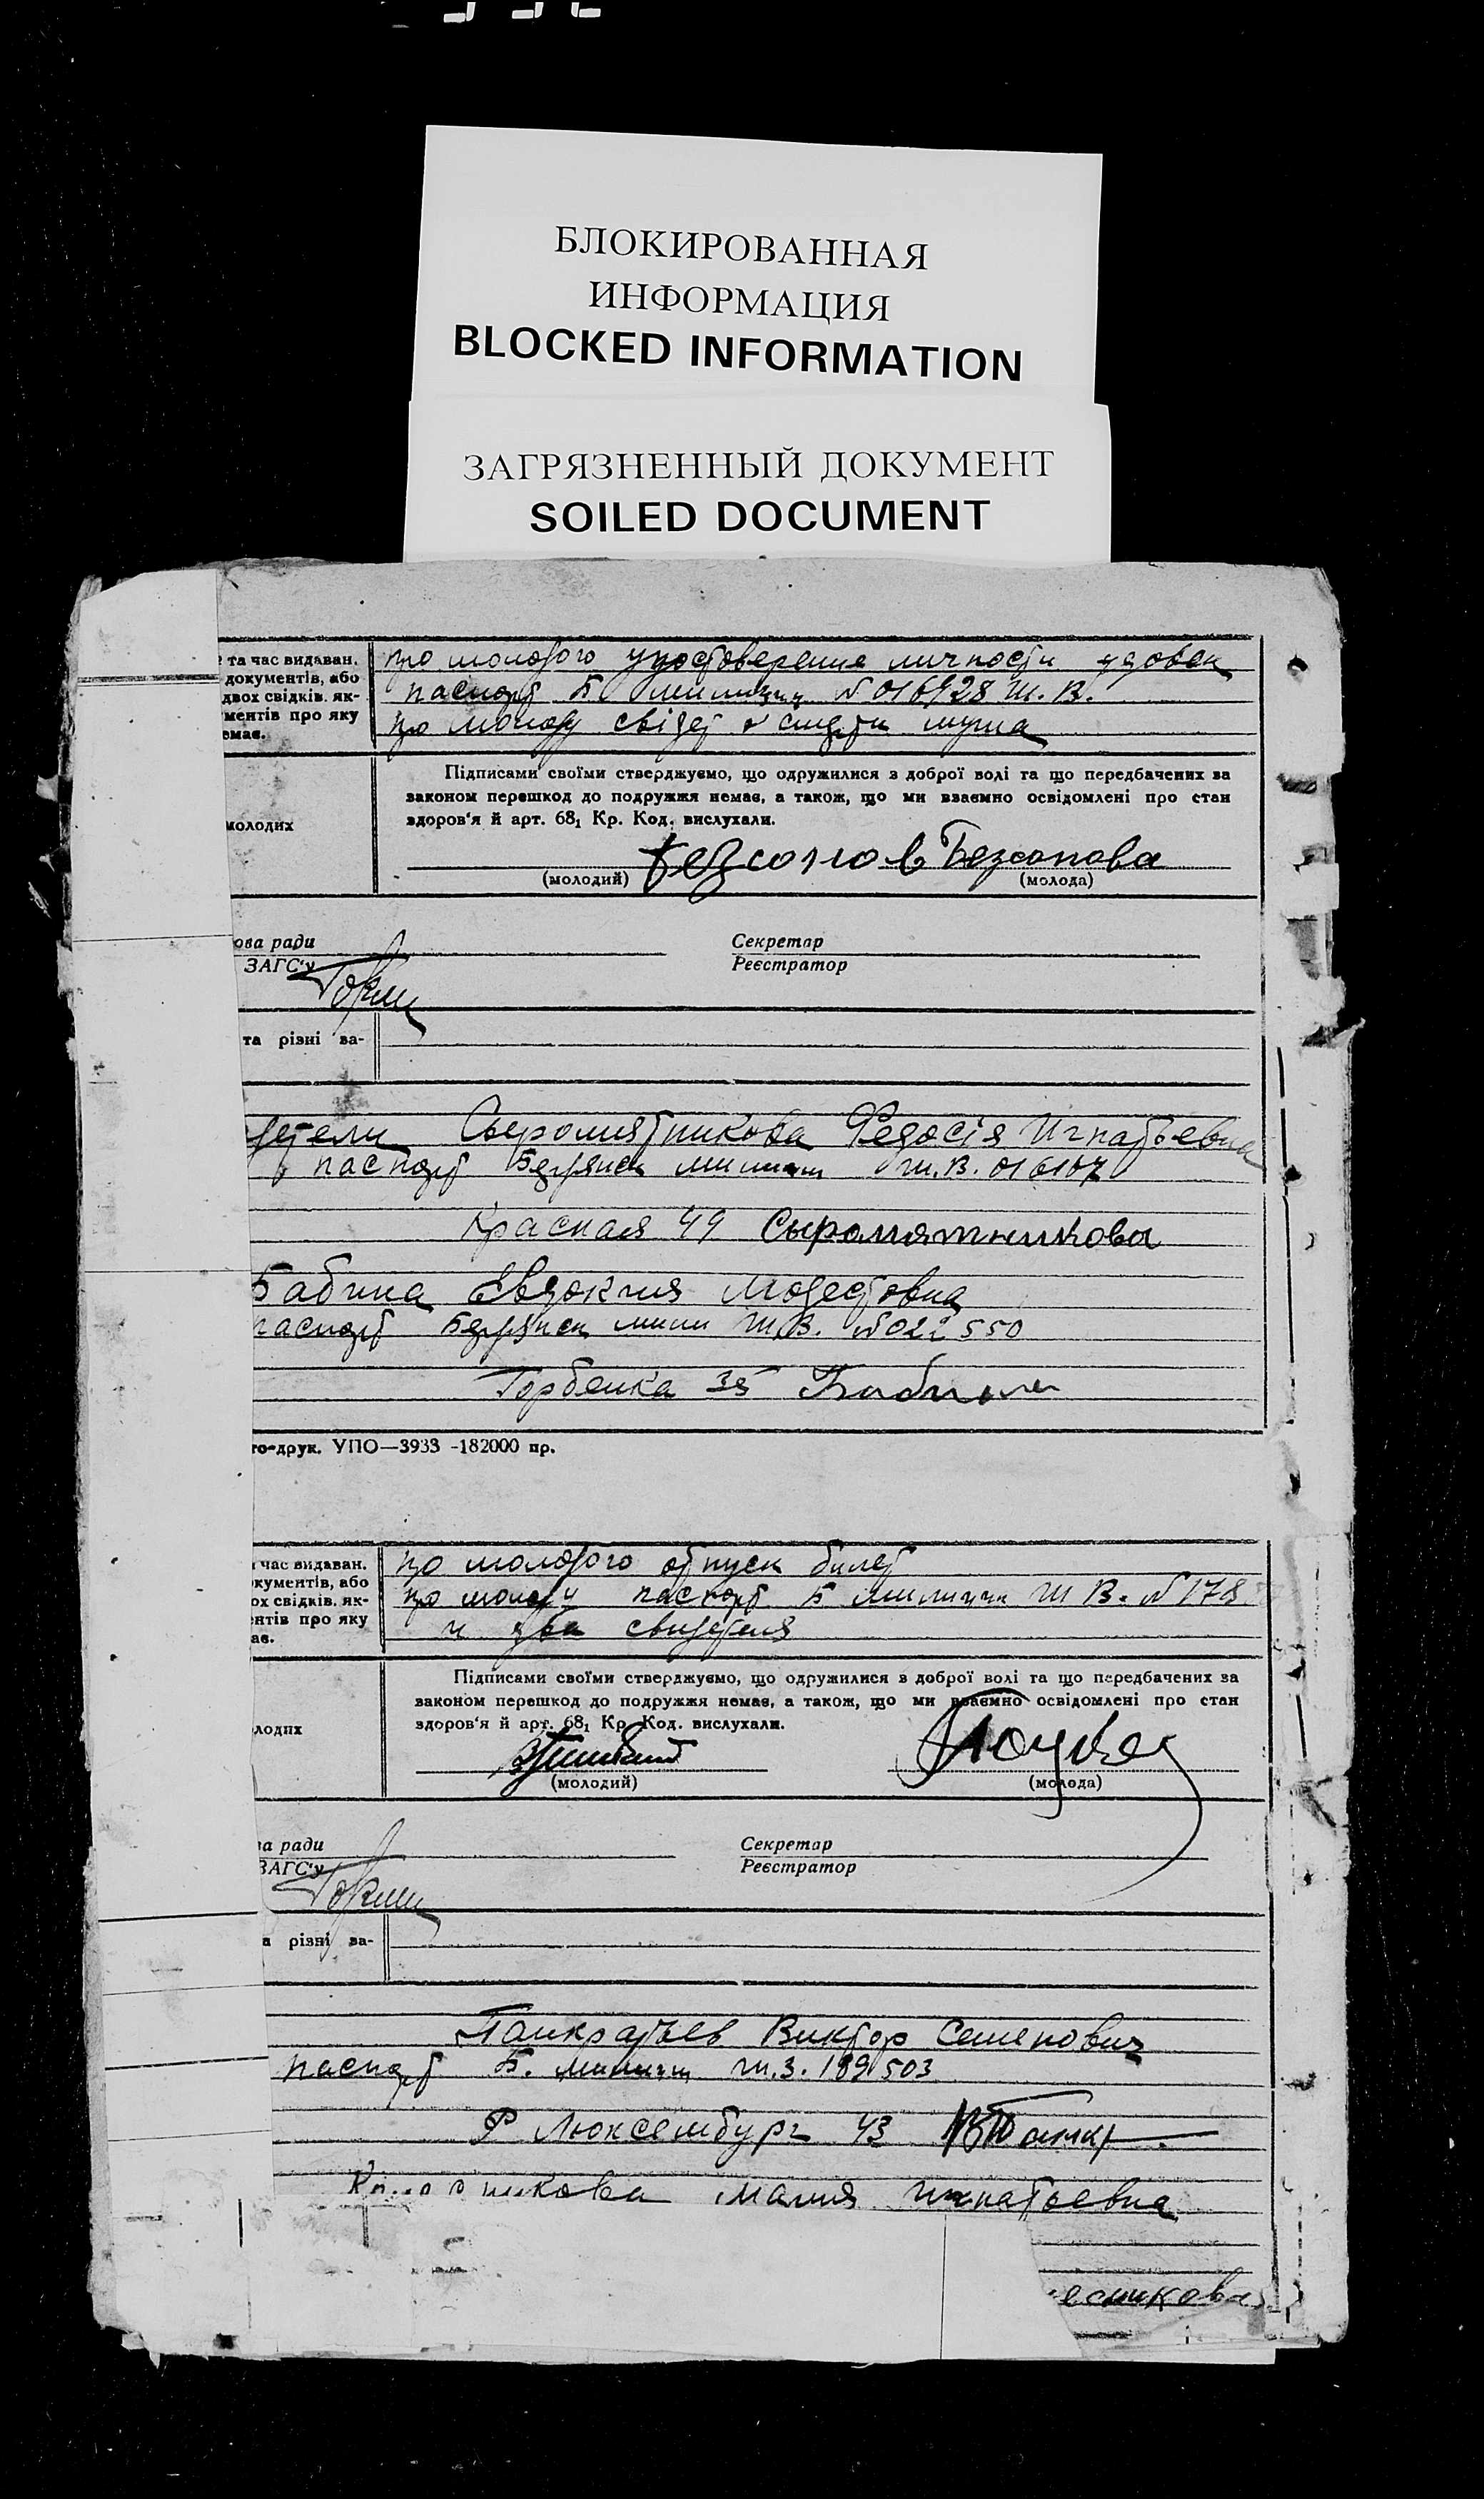 БЛОКИРОВАННАЯ
ИНФОРМАЦИЯ
BLOCKED INFORMATION
ЗАГРЯЗНЕННЫЙ ДОКУМЕНТ
SOILED DOCUMENT
та час видаван.
документів, або
двох свідків. як-
ментів про яку
емає.
про молодого удостоверение личности
паспорт Б милиции № 016928 Ш. В.
про молоду свідет о смерти мужа
Підписами своїми стверджуємо, що одружилися з доброї волі та що передбачених за
законом перешкод до подружжя немає, а також, що ми взаємно освідомлені про стан
здоров'я й арт. 68₁ Кр. Код. вислухали.
молодих
Безсонов Безсонова
(молодий) (молода)
ова ради Секретар
ЗАГС'у Реєстратор
та різні за-
детели Сыромятникова Федосія Игнатьевна
паспорт Бердянск милиции Ш. В. 016167
Красная 49 Сыромятникова
Бабина Евдокия Модестовна
паспорт Бердянск мили Ш. В. № 022550
Горбенка 35 Бабина
то-друк. УПО—3933 -182000 пр.
час видаван.
кументів, або
ох свідків. як-
ентів про яку
ає.
про молодого отпуск билет
про молоду паспорт Б милиции Ш В. № 178
и два свидетеля
Підписами своїми стверджуємо, що одружилися з доброї волі та що передбачених за
законом перешкод до подружжя немає, а також, що ми взаємно освідомлені про стан
здоров'я й арт. 68₁ Кр. Код. вислухали.
лодих
(молодий) (молода)
ва ради Секретар
ЗАГС'у Реєстратор
а різні за-
Панкратьев Виктор Семенович
паспорт Б. милиции Ш. З. 189503
Р Люксембург 43
Мария Игнатьевна
есникова